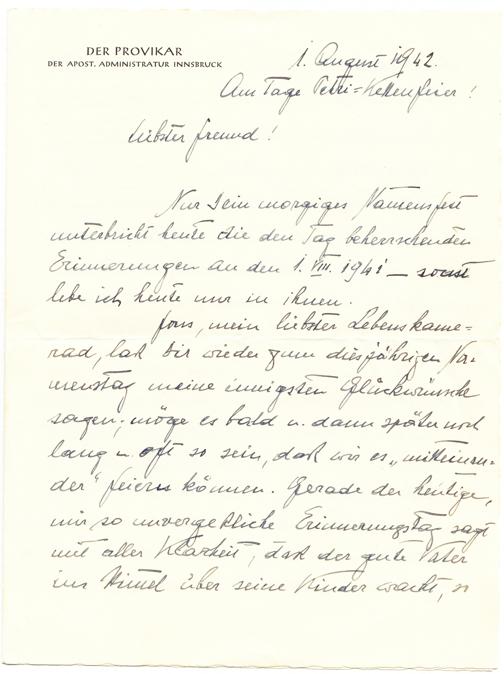 DER PROVIKAR
DER APOST. ADMINISTRATUR INNSBRUCK
1. August 1942.
Am Tage Petri=Kettenfeier!
Liebster Freund!
Nur Dein morgiges Namensfest
unterbricht heute die den Tag beherrschenden
Erinnerungen an den 1. VIII. 1941 – sonst
lebe ich heute nur in ihnen.
mein liebster Lebenskame-
rad, laß Dir wieder zum diesjährigen Na-
menstag meine innigsten Glückwünsche
sagen; möge es bald u. dann später noch
lang u. oft so sein, daß wir es „miteinan-
der" feiern können. Gerade der heutige,
mir so unvergeßliche Erinnerungstag sagt
mit aller Klarheit, daß der gute Vater
im Himmel über seine Kinder wacht, so